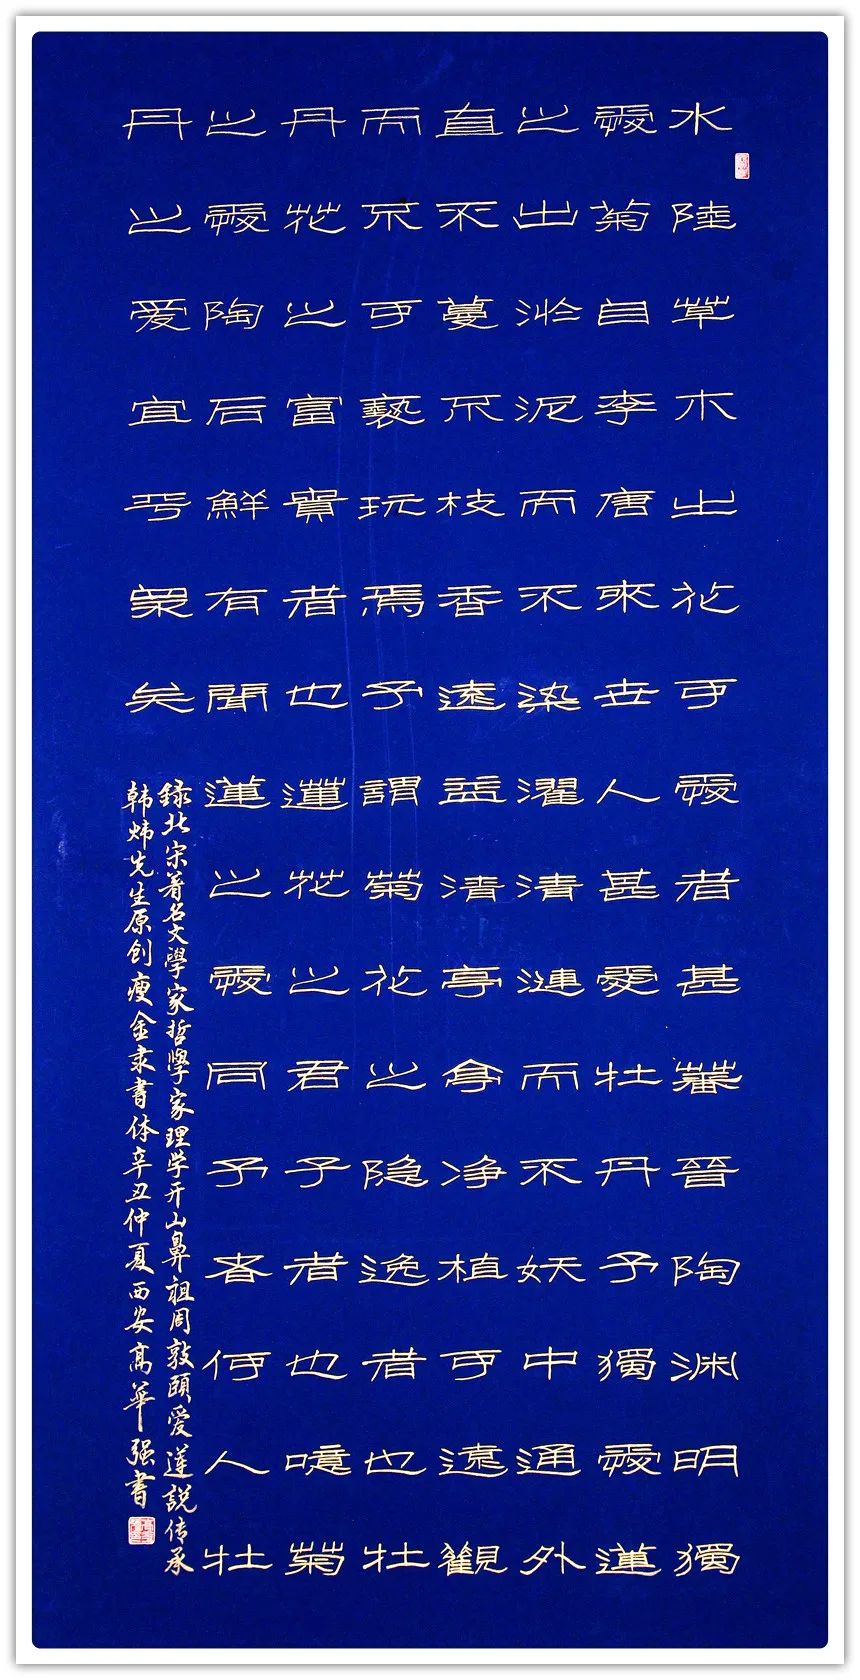 水陸草木之花可愛者甚蕃晉陶渊明獨
愛菊自李唐來世人甚愛牡丹予獨愛蓮
之出淤泥而不染濯清漣而不妖中通外
直不蔓不枝香遠益清亭亭净植可遠觀
而不可褻玩焉予謂菊花之隐逸者也牡
丹花之富貴者也蓮花之君子者也噫菊
之愛陶后鮮有聞蓮之愛同予者何人牡
丹之爱宜乎衆矣
録北宋著名文學家哲學家理学开山鼻祖周敦頤爱蓮説传承
韩炜先生原创瘦金隶書体辛丑仲夏西安高華强書